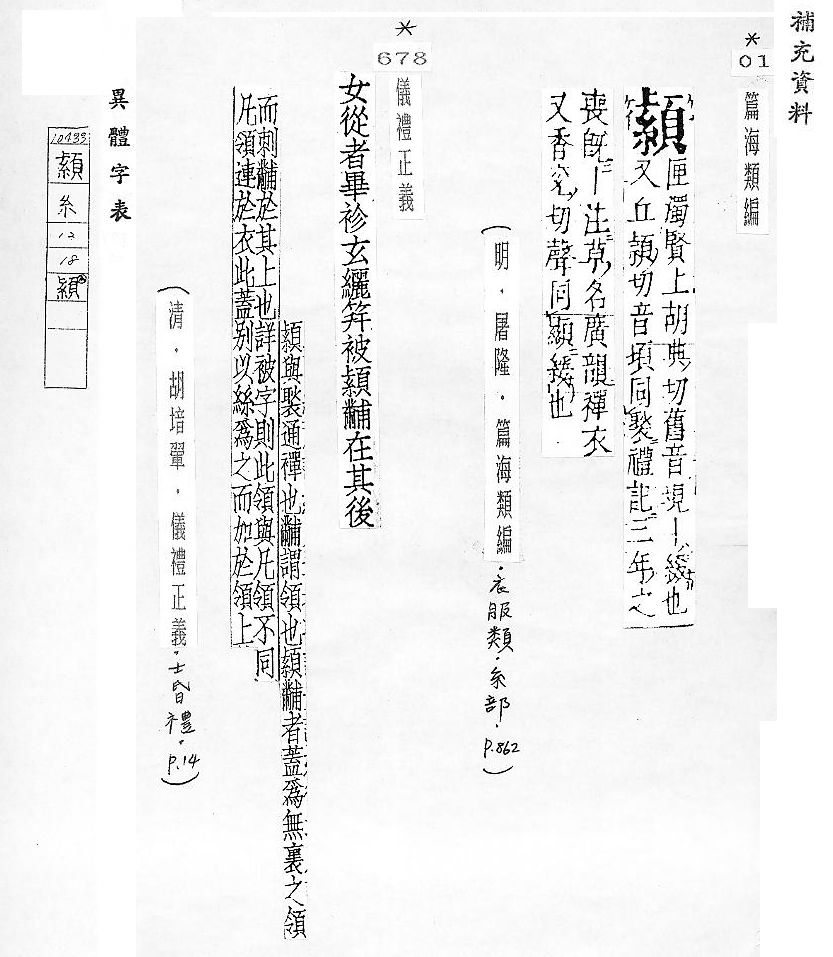 補充資料
*
01
篇海類編
纇
匣濁賢上胡典切舊音現丨綫也
又丘穎切音頃同褧禮記三年之
喪旣丨注草名廣韻襌衣
又香兖切聲同顯綫也
(明.屠隆.篇海類編.衣服類.糸部.P.862)
*
678
儀禮正義
女從者畢袗玄纚笄被潁黼在其後
與褧通襌也黼謂領也黼者蓋爲無裏之領
而刺黼於其上也詳被字則此領與凡領不同
凡領連於衣此蓋別以絲爲之而加於領上
(清.胡培翬.儀禮正義.士昏禮.P.14)
異體字表
10433
糸
12
18